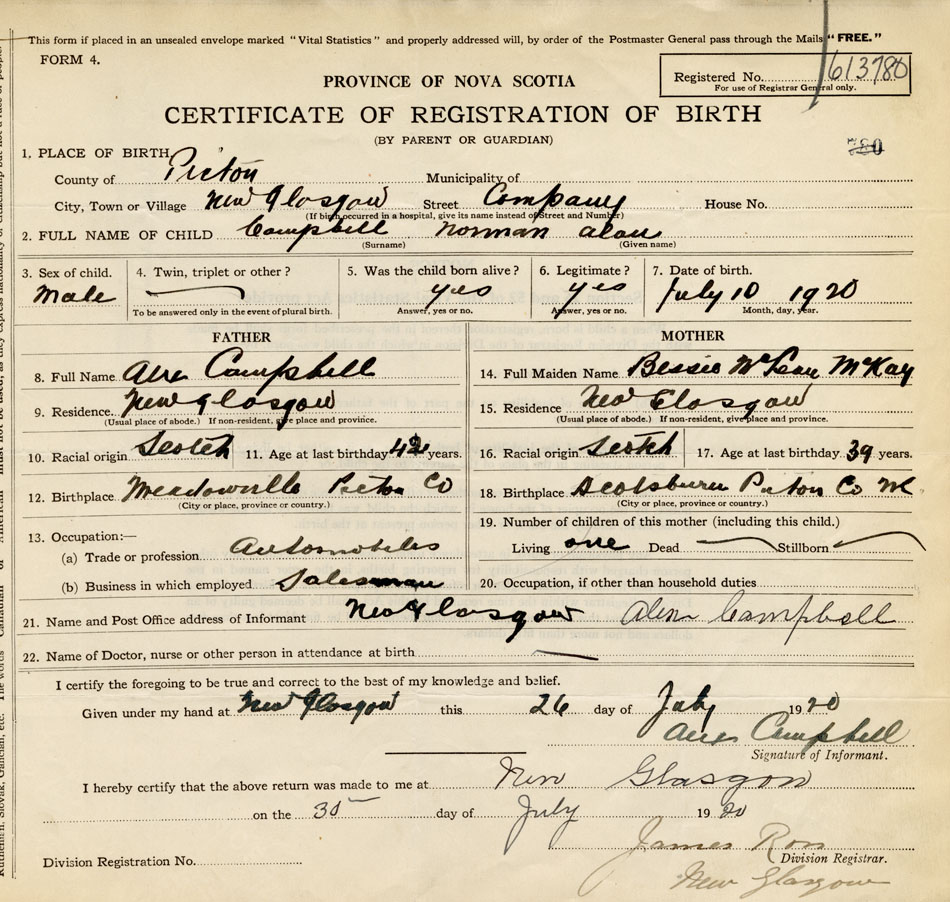 This form if placed in an unsealed envelope marked "Vital Statistics" and properly addressed will, by order of the Postmaster General pass through the Mails "FREE."
FORM 4.
Registered No. 613780
For use of Registrar General only.
PROVINCE OF NOVA SCOTIA
CERTIFICATE OF REGISTRATION OF BIRTH
(BY PARENT OR GUARDIAN)
780
1. PLACE OF BIRTH
County of Picton Municipality of
City, Town or Village New Glasgow Street Company House No.
(If birth occurred in a hospital, give its name instead of Street and Number)
2. FULL NAME OF CHILD Campbell Norman Alan
(Surname) (Given name)
3. Sex of child. 4. Twin, triplet or other? 5. Was the child born alive? 6. Legitimate? 7. Date of birth.
Male yes yes July 10 1920
To be answered only in the event of plural birth. Answer, yes or no. Answer, yes or no. Month, day, year.
FATHER MOTHER
8. Full Name Alex Campbell 14. Full Maiden Name Bessie McLean McKay
9. Residence New Glasgow 15. Residence New Glasgow
(Usual place of abode.) If non-resident, give place and province. (Usual place of abode.) If non-resident, give place and province.
10. Racial origin Scotch 11. Age at last birthday 42 years. 16. Racial origin Scotch 17. Age at last birthday 39 years.
12. Birthplace Meadowville Picton Co 18. Birthplace Scotsburn Picton Co
(City or place, province or country.) (City or place, province or country.)
19. Number of children of this mother (including this child.)
13. Occupation:—
(a) Trade or profession Automobiles Living one Dead Stillborn
(b) Business in which employed Salesman 20. Occupation, if other than household duties
21. Name and Post Office address of Informant New Glasgow Alex Campbell
22. Name of Doctor, nurse or other person in attendance at birth
I certify the foregoing to be true and correct to the best of my knowledge and belief.
Given under my hand at New Glasgow this 26 day of July 1920
Alex Campbell
Signature of Informant.
I hereby certify that the above return was made to me at New Glasgow
on the 30 day of July 1920
James Ross
Division Registration No. Division Registrar.
New Glasgow